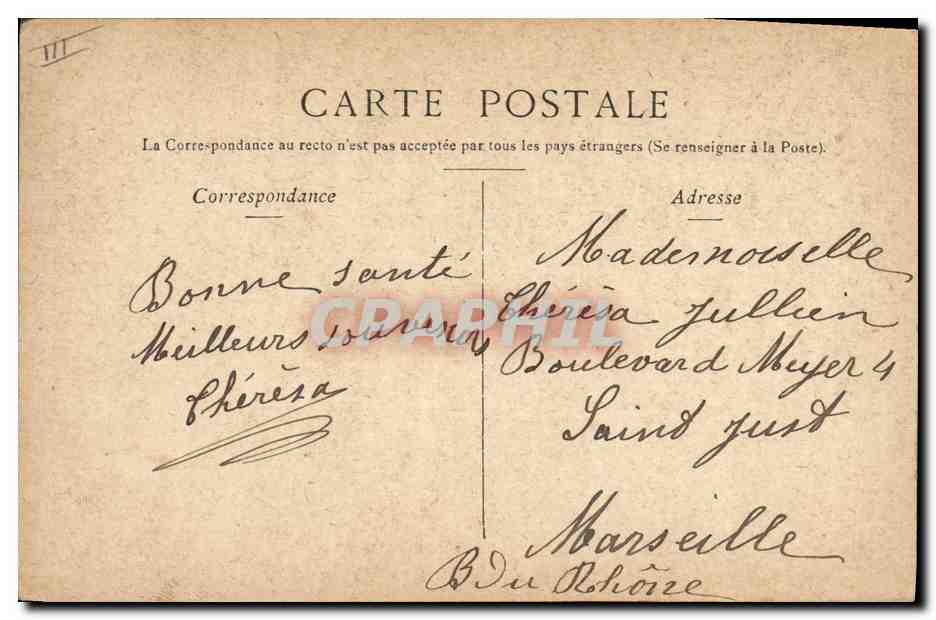 III
CARTE POSTALE
La Correspondance au recto n'est pas acceptée par tous les pays étrangers (Se renseigner à la Poste).
Correspondance
Bonne santé
Meilleurs souvenirs
Thérèsa
Adresse
Mademoiselle
Thérèsa Jullien
Boulevard Meyer 4
Saint Just
Marseille
B du Rhône
CPAPHIL